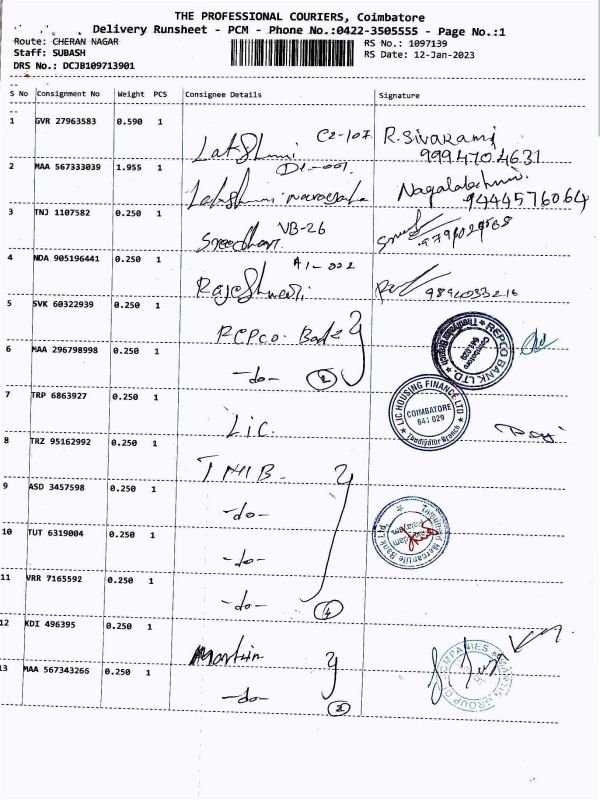 THE PROFESSIONAL COURIERS, Coimbatore
Delivery Runsheet - PCM - Phone No.:0422-3505555 - Page No.:1
Route: CHERAN NAGAR
RS No.: 1097139
Staff: SUBASH
RS Date: 12-Jan-2023
DRS No.: DCJB109713901
S No Consignment No Weight PCS Consignee Details Signature
1 GVR 27963583 0.590 1
Lakshmi C2-107 R.Sivakami
9994704631
2 MAA 567333039 1.955 1
D1-001
Lakshmi narayana Nagalakshmi
9444576064
3 TNJ 1107582 0.250 1
Sreedhar VB-26
4 NDA 905196441 0.250 1
A1-002
Rajeshwari 9894033216
5 SVK 60322939 0.250 1
Repco Bank
REPCO BANK LTD
Coimbatore
641 029
6 MAA 296798998 0.250 1
-do- 2
7 TRP 6863927 0.250 1
LIC.
LIC HOUSING FINANCE LTD
COIMBATORE
641 029
Thudiyalur Branch
8 TRZ 95162992 0.250 1
TMB.
9 ASD 3457598 0.250 1
-do-
Tamilnad Mercantile Bank Ltd.
10 TUT 6319004 0.250 1
-do-
11 VRR 7165592 0.250 1
-do- 4
12 KDI 496395 0.250 1
Martin
MARTIN GROUP OF COMPANIES
13 MAA 567343266 0.250 1
-do- 2